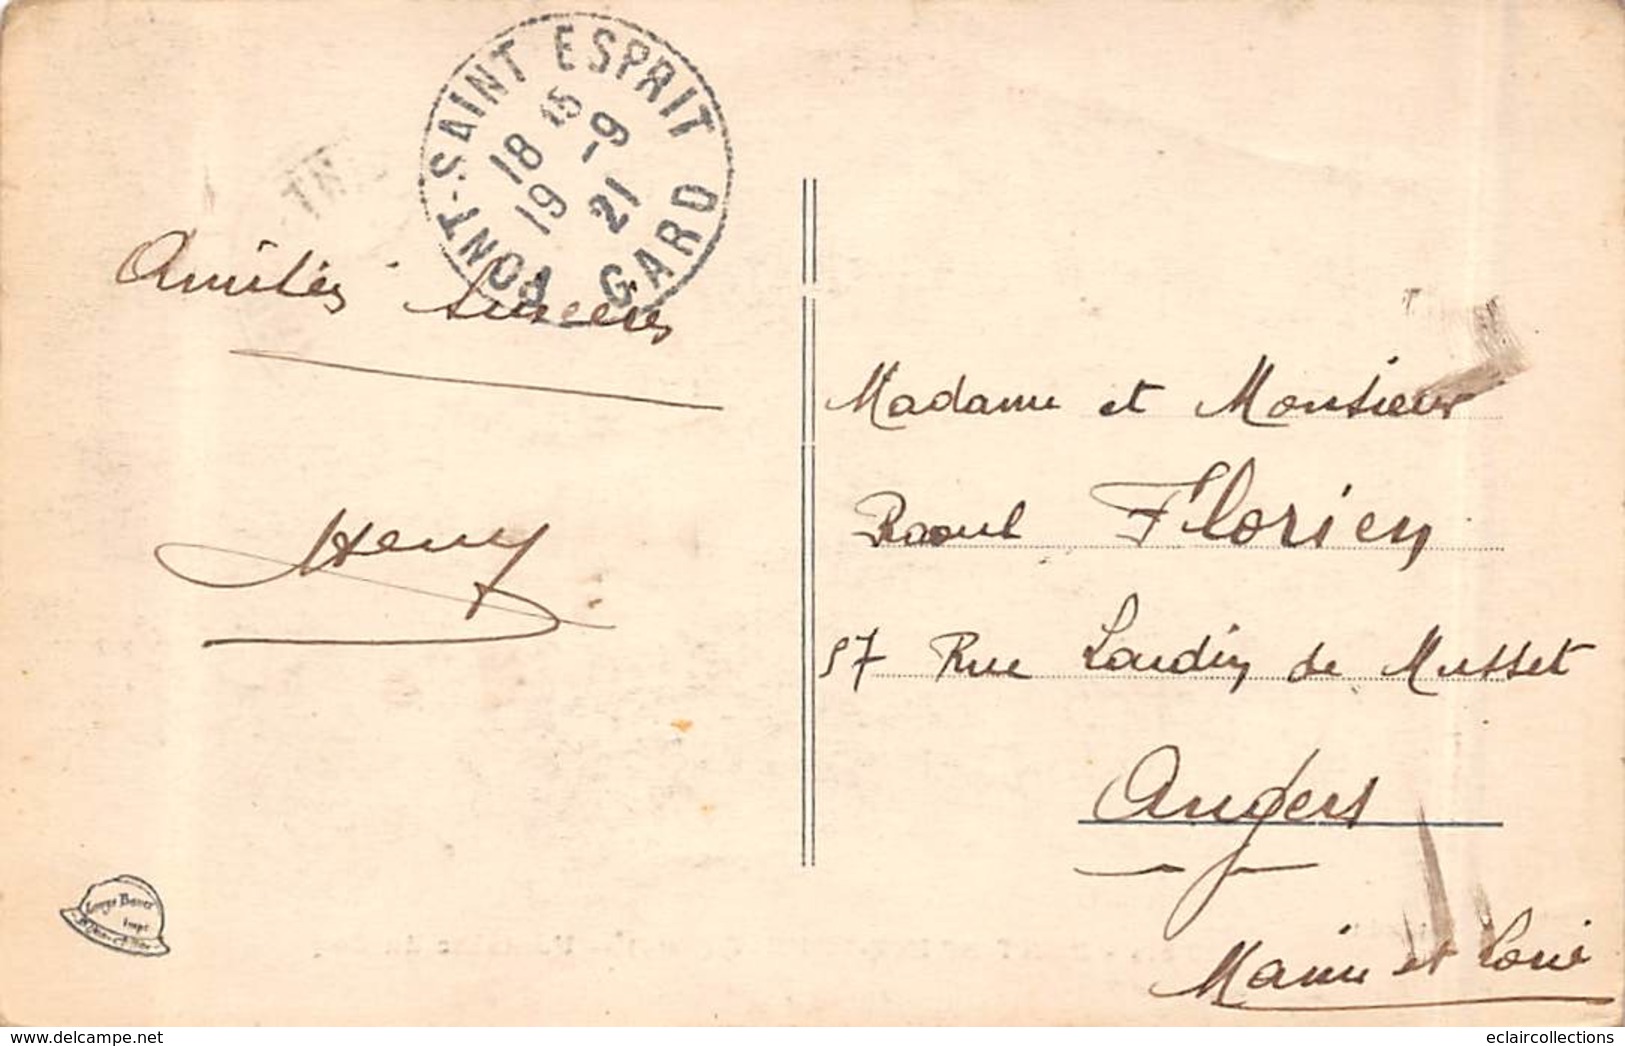 PONT-SAINT ESPRIT
18 15
19 -9
21
GARD
Amitiés Sincères
Henry
Madame et Monsieur
Raoul Florien
57 Rue Lardin de Musset
Angers
Maine et Loire
www.delcampe.net
eclaircollections